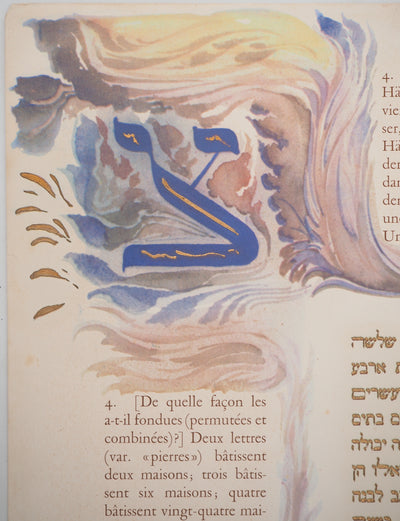 צ
4.
Hä
vie
ser,
Hä
der
dar
der
un
Un
4. [De quelle façon les
a-t-il fondues (permutées et
combinées)?] Deux lettres
(var. « pierres ») bâtissent
deux maisons; trois bâtis-
sent six maisons; quatre
bâtissent vingt-quatre mai-
שלשה
ת ארבע
עשרים
ם בתים
ה יכולה
אלו הן
ב לבנה